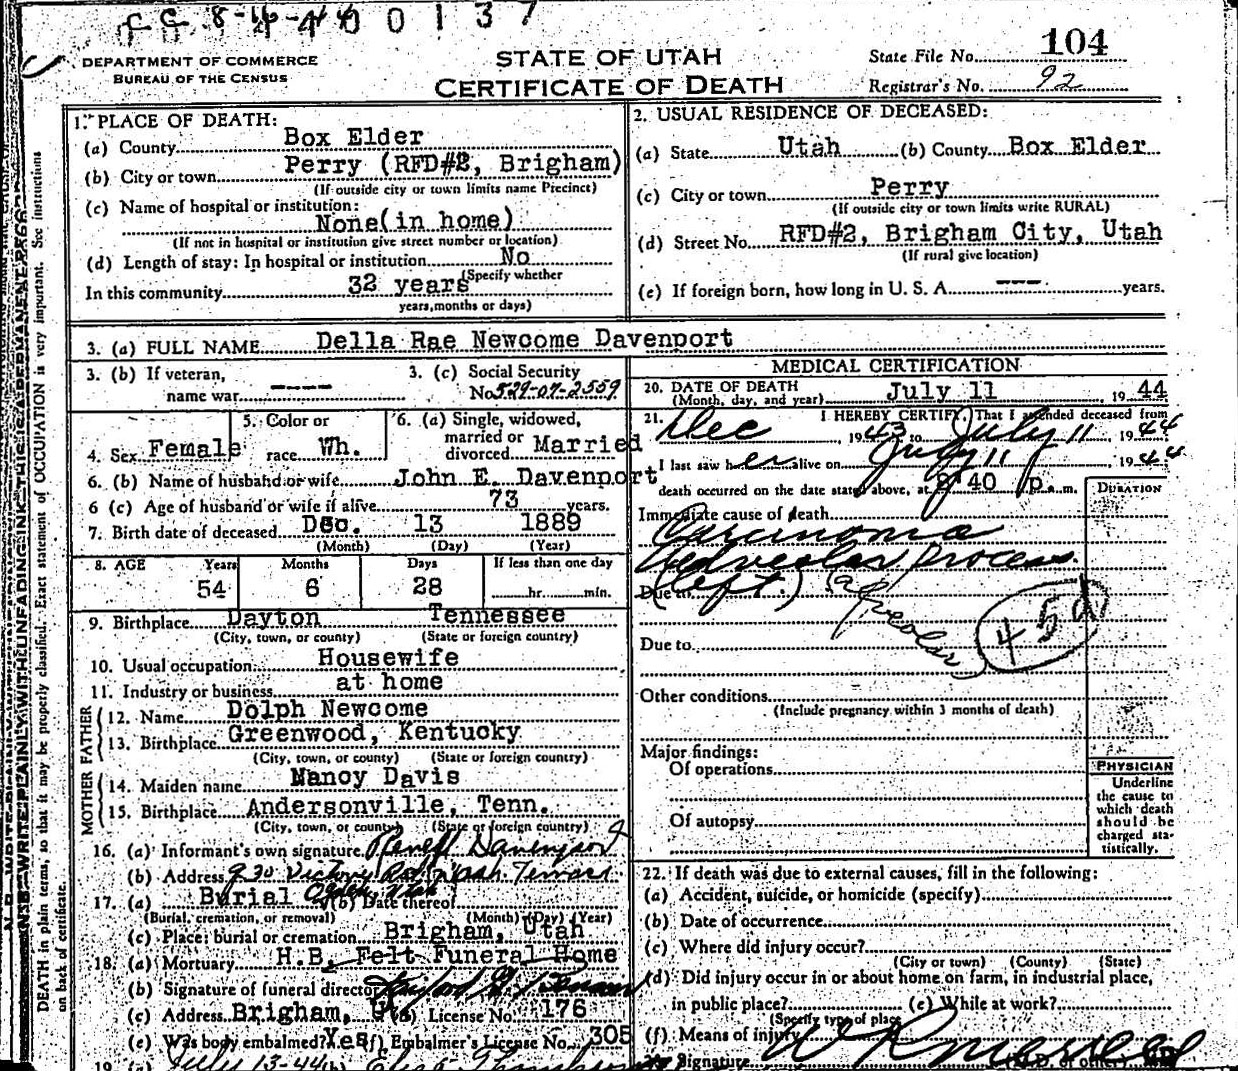 CC 8-16-44 00137
DEPARTMENT OF COMMERCE
BUREAU OF THE CENSUS
STATE OF UTAH
CERTIFICATE OF DEATH
State File No. 104
Registrar's No. 92
N. B. WRITE PLAINLY WITH UNFADING INK-THIS IS A PERMANENT RECORD
DEATH in plain terms, so that it may be properly classified. Exact statement of OCCUPATION is very important. See instructions
on back of certificate.
1. PLACE OF DEATH:
(a) County Box Elder
(b) City or town Perry (RFD#2, Brigham)
(If outside city or town limits name Precinct)
(c) Name of hospital or institution:
None(in home)
(If not in hospital or institution give street number or location)
(d) Length of stay: In hospital or institution No
(Specify whether
In this community 32 years
years, months or days)
2. USUAL RESIDENCE OF DECEASED:
(a) State Utah (b) County Box Elder
(c) City or town Perry
(If outside city or town limits write RURAL)
(d) Street No. RFD#2, Brigham City, Utah
(If rural give location)
(e) If foreign born, how long in U. S. A. ---- years.
3. (a) FULL NAME Della Rae Newcome Davenport
3. (b) If veteran,
name war ----
3. (c) Social Security
No. 529-07-2559
4. Sex Female
5. Color or
race Wh.
6. (a) Single, widowed,
married or
divorced Married
6. (b) Name of husband or wife John E. Davenport
6 (c) Age of husband or wife if alive 73 years.
7. Birth date of deceased Dec. 13 1889
(Month) (Day) (Year)
8. AGE Years Months Days If less than one day
54 6 28 hr. min.
9. Birthplace Dayton Tennessee
(City, town, or county) (State or foreign country)
10. Usual occupation Housewife
11. Industry or business at home
FATHER
12. Name Dolph Newcome
13. Birthplace Greenwood, Kentucky
(City, town, or county) (State or foreign country)
MOTHER
14. Maiden name Nancy Davis
15. Birthplace Andersonville, Tenn.
(City, town, or county) (State or foreign country)
16. (a) Informant's own signature Davenport
(b) Address 930 Victory Rd. Wash Terrace
Ogden, Utah
17. (a) Burial (b) Date thereof
(Burial, cremation, or removal) (Month) (Day) (Year)
(c) Place: burial or cremation Brigham, Utah
18. (a) Mortuary H.B. Felt Funeral Home
(b) Signature of funeral director
(c) Address Brigham, Uta License No. 176
(e) Was body embalmed? Yes (f) Embalmer's License No. 305
19. (a) July 13-44 (b)
MEDICAL CERTIFICATION
20. DATE OF DEATH
(Month, day, and year) July 11 1944
21. I HEREBY CERTIFY, That I attended deceased from
Dec, 1943 to July 11, 1944
I last saw her alive on July 11, 1944
death occurred on the date stated above, at 8:40 p.m.
DURATION
Immediate cause of death
Carcinoma
Alveolar process
Due to (left.) (alveolar) 45d
Due to
Other conditions
(Include pregnancy within 3 months of death)
Major findings:
Of operations
Of autopsy
PHYSICIAN
Underline
the cause to
which death
should be
charged sta-
tistically.
22. If death was due to external causes, fill in the following:
(a) Accident, suicide, or homicide (specify)
(b) Date of occurrence
(c) Where did injury occur?
(City or town) (County) (State)
(d) Did injury occur in or about home on farm, in industrial place,
in public place? (e) While at work?
(Specify type of place)
(f) Means of injury
Signature (M.D. or other) MD